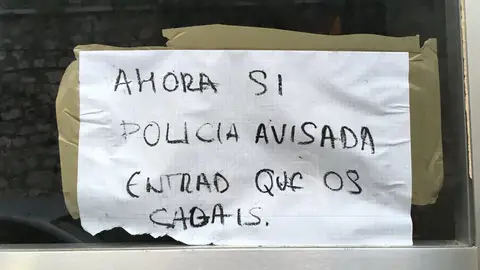 AHORA SI
POLICIA AVISADA
ENTRAD QUE OS
CAGAIS.